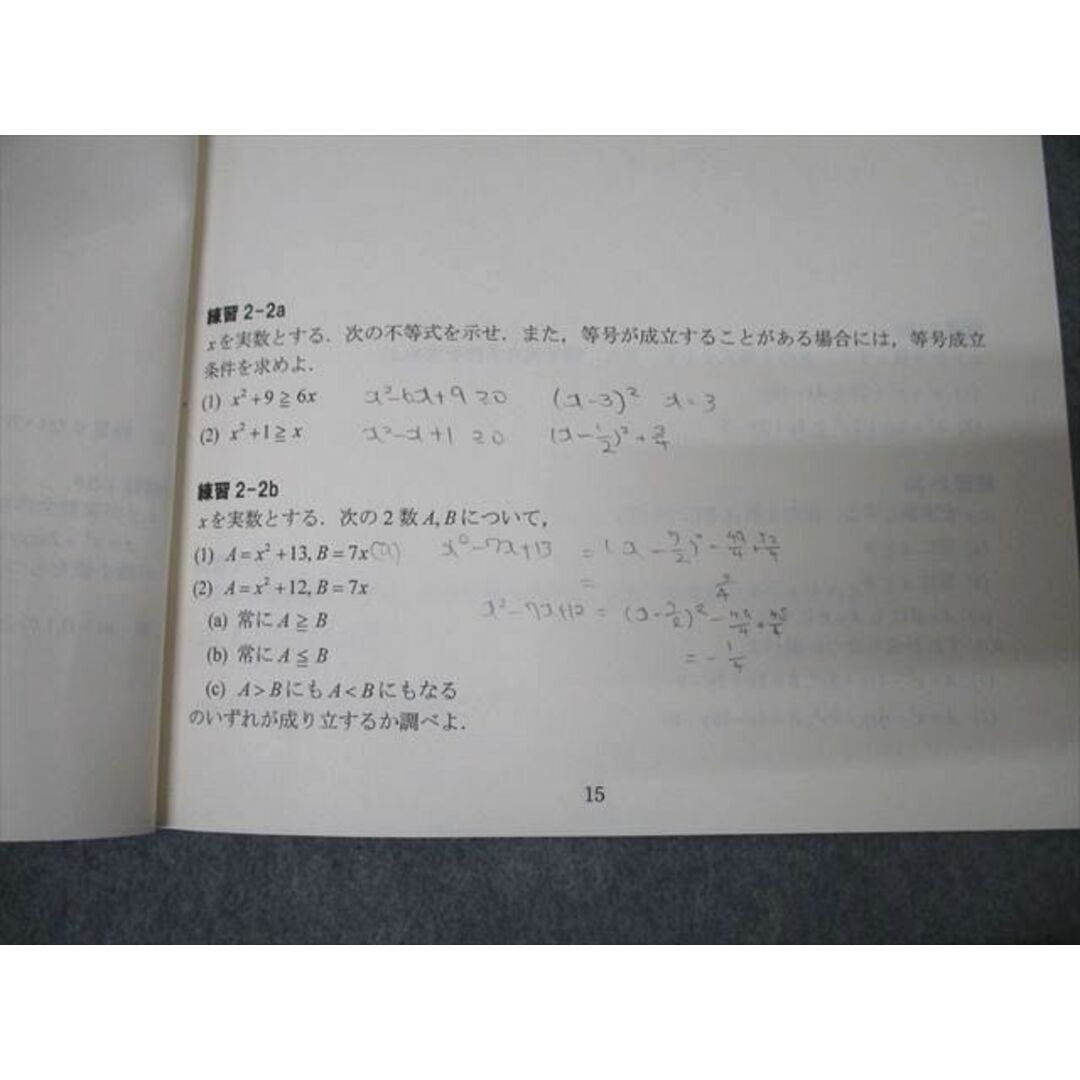 練習 2-2a
xを実数とする．次の不等式を示せ．また，等号が成立することがある場合には，等号成立
条件を求めよ．
(1) x²+9≧6x x²-6x+9≧0 (x-3)² x=3
(2) x²+1≧x x²-x+1≧0 (x-1/2)²+3/4
練習 2-2b
xを実数とする．次の2数A,Bについて，
(1) A=x²+13, B=7x (a) x²-7x+13 = (x-7/2)²-49/4+52/4
= 3/4
(2) A=x²+12, B=7x
x²-7x+12 = (x-7/2)²-49/4+48/4
(a) 常にA≧B
= -1/4
(b) 常にA≦B
(c) A>BにもA<Bにもなる
のいずれが成り立つか調べよ．
15